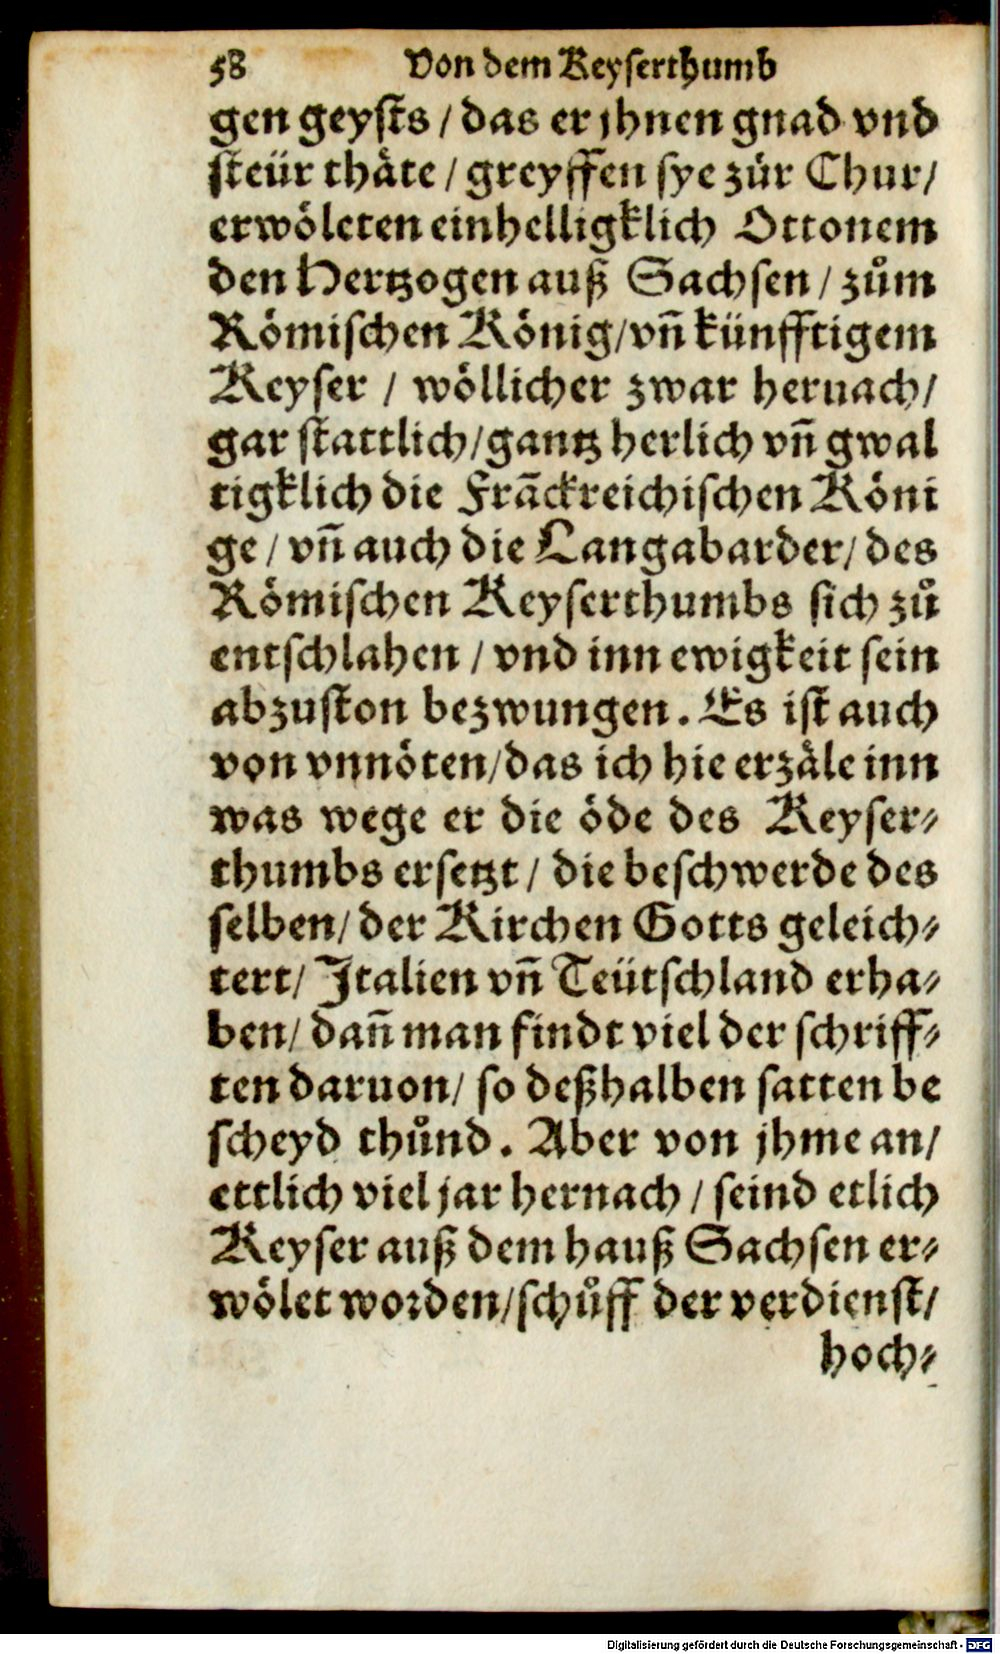 58 Von dem Keyserthumb
gen geysts / das er jhnen gnad vnd
steür thäte / greyffen sye zůr Chur /
erwöleten einhelligklich Ottonem
den Hertzogen auß Sachsen / zům
Römischen König / vñ künfftigem
Keyser / wöllicher zwar hernach /
gar stattlich / gantz herlich vñ gwal
tigklich die Frãckreichischen Köni
ge / vñ auch die Langabarder / des
Römischen Keyserthumbs sich zů
entschlahen / vnd inn ewigkeit sein
abzuston bezwungen. Es ist auch
von vnnöten / das ich hie erzäle inn
was wege er die öde des Keyser⸗
thumbs ersetzt / die beschwerde des
selben / der Kirchen Gotts geleich⸗
tert / Italien vñ Teütschland erha⸗
ben / dañ man findt viel der schriff⸗
ten daruon / so deßhalben satten be
scheyd thůnd. Aber von jhme an /
ettlich viel jar hernach / seind etlich
Keyser auß dem hauß Sachsen er⸗
wölet worden / schůff der verdienst /
hoch⸗
Digitalisierung gefördert durch die Deutsche Forschungsgemeinschaft - DFG